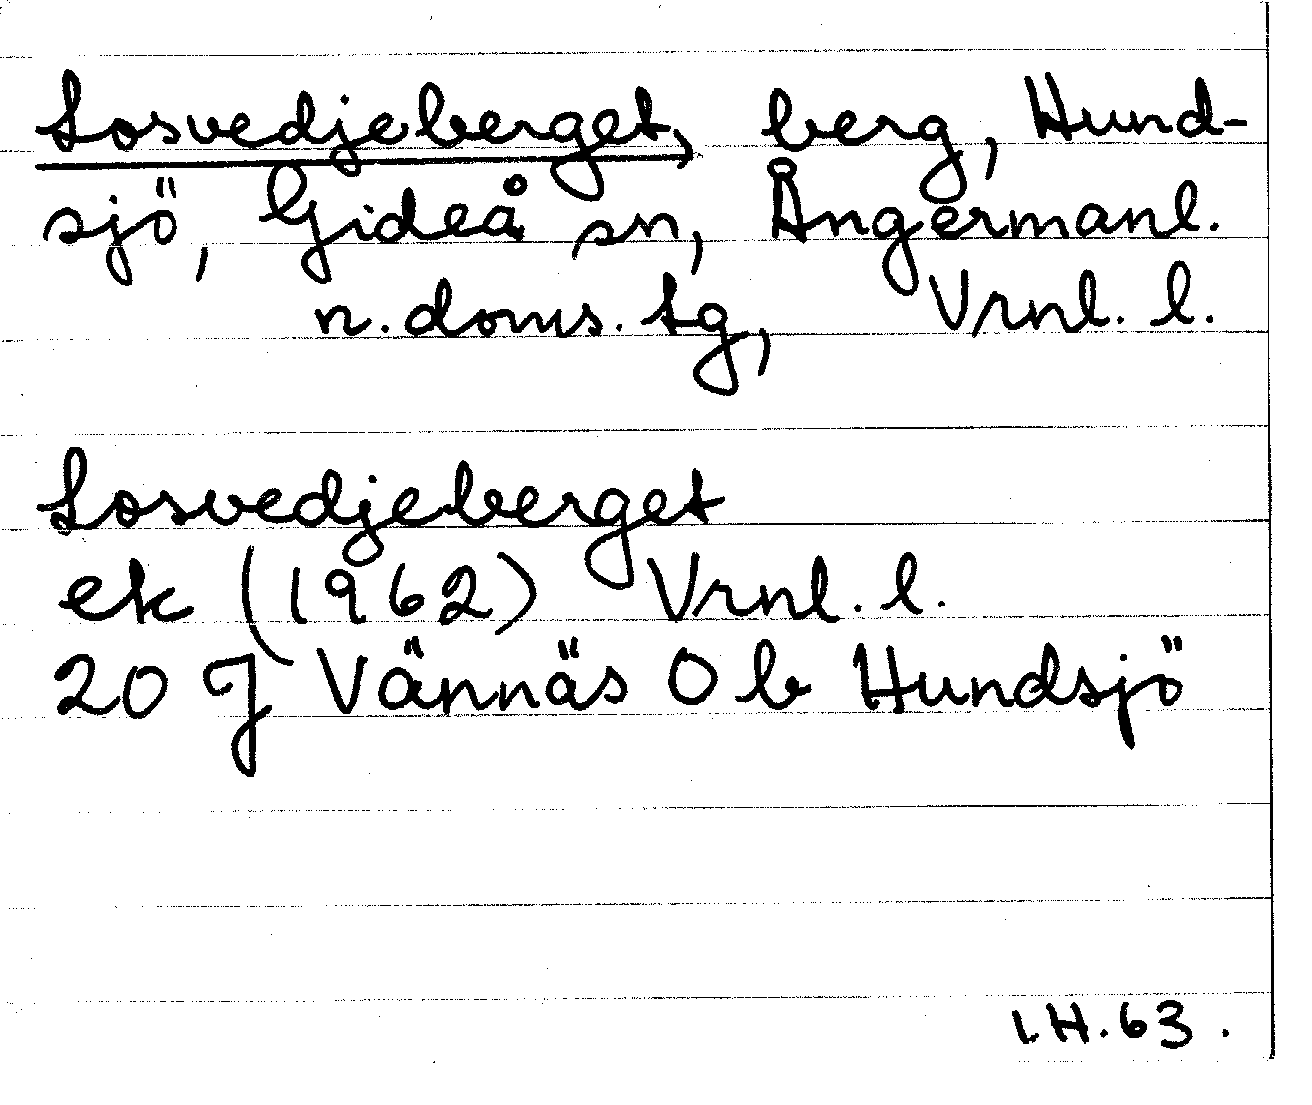 Losvedjeberget, berg, Hund-
sjö, Gideå sn, Ångermanl.
n. doms. tg, Vrnl. l.
Losvedjeberget
ek (1962) Vrnl. l.
20 J Vännäs O b Hundsjö
I.H. 63.